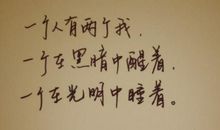 一个人有两个我,
一个在黑暗中醒着,
一个在光明中睡着。